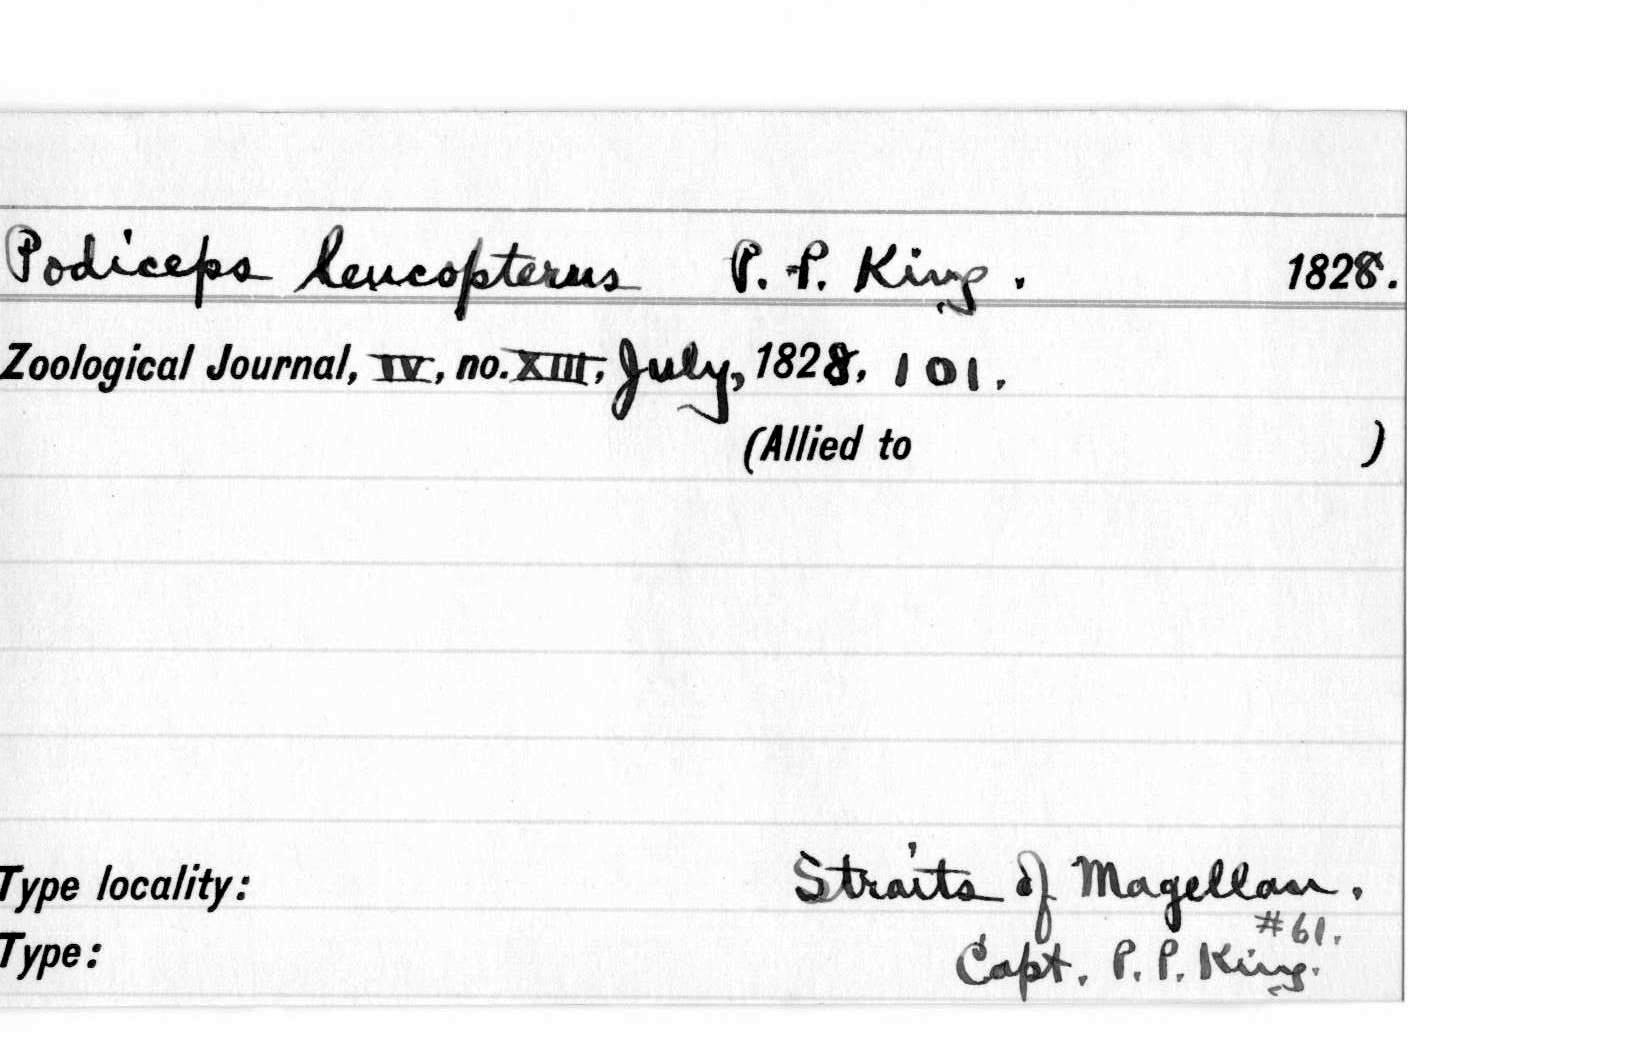 Podiceps leucopterus P. P. King. 1828.
Zoological Journal, IV, no. XIII, July, 1828, 101.
(Allied to )
Type locality: Straits of Magellan.
#61.
Type: Capt. P. P. King.